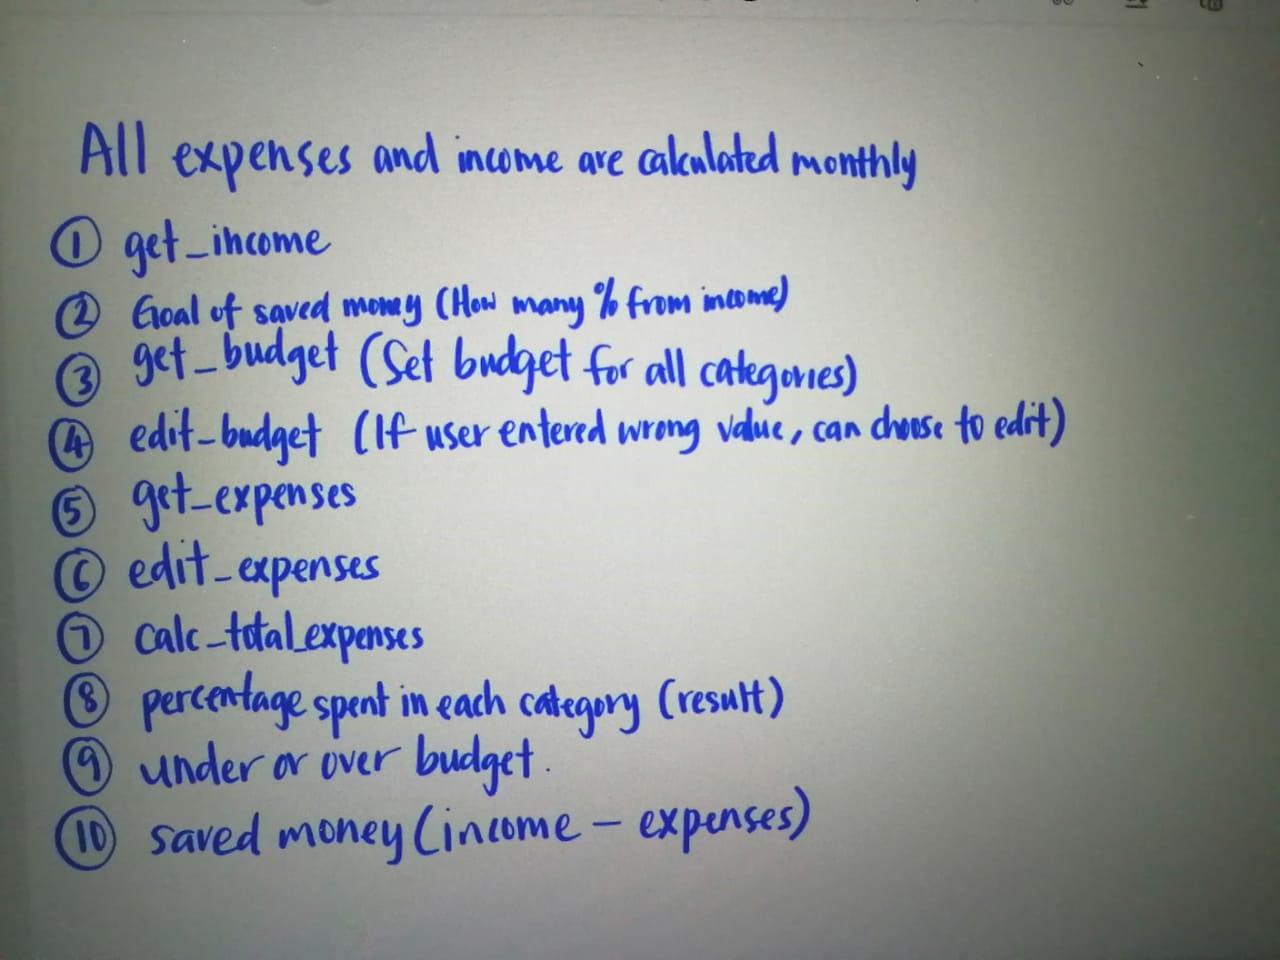 All expenses and income are calculated monthly
① get_income
② Goal of saved money (How many % from income)
③ get_budget (Set budget for all categories)
④ edit_budget (If user entered wrong value, can choose to edit)
⑤ get_expenses
⑥ edit_expenses
⑦ calc_total_expenses
⑧ percentage spent in each category (result)
⑨ under or over budget.
⑩ saved money (income - expenses)